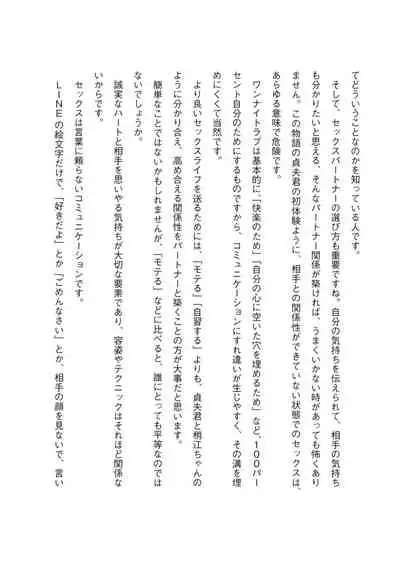 てどういうことなのかを知っている人です。
そして、セックスパートナーの選び方も重要ですね。自分の気持ちを伝えられて、相手の気持ち
も分かりたいと思える、そんなパートナー関係が築ければ、うまくいかない時があっても怖くあり
ません。この物語の貞夫君の初体験ように、相手との関係性ができていない状態でのセックスは、
あらゆる意味で危険です。
ワンナイトラブは基本的に、「快楽のため」「自分の心に空いた穴を埋めるため」など、100パー
セント自分のためにするものですから、コミュニケーションにすれ違いが生じやすく、その溝を埋
めにくくて当然です。
より良いセックスライフを送るためには、「モテる」「自習する」よりも、貞夫君と梢江ちゃんの
ように分かり合え、高め合える関係性をパートナーと築くことの方が大事だと思います。
簡単なことではないかもしれませんが、「モテる」などに比べると、誰にとっても平等なのでは
ないでしょうか。
誠実なハートと相手を思いやる気持ちが大切な要素であり、容姿やテクニックはそれほど関係な
いからです。
セックスは言葉に頼らないコミュニケーションです。
LINEの絵文字だけで、「好きだよ」とか「ごめんなさい」とか、相手の顔を見ないで、言い